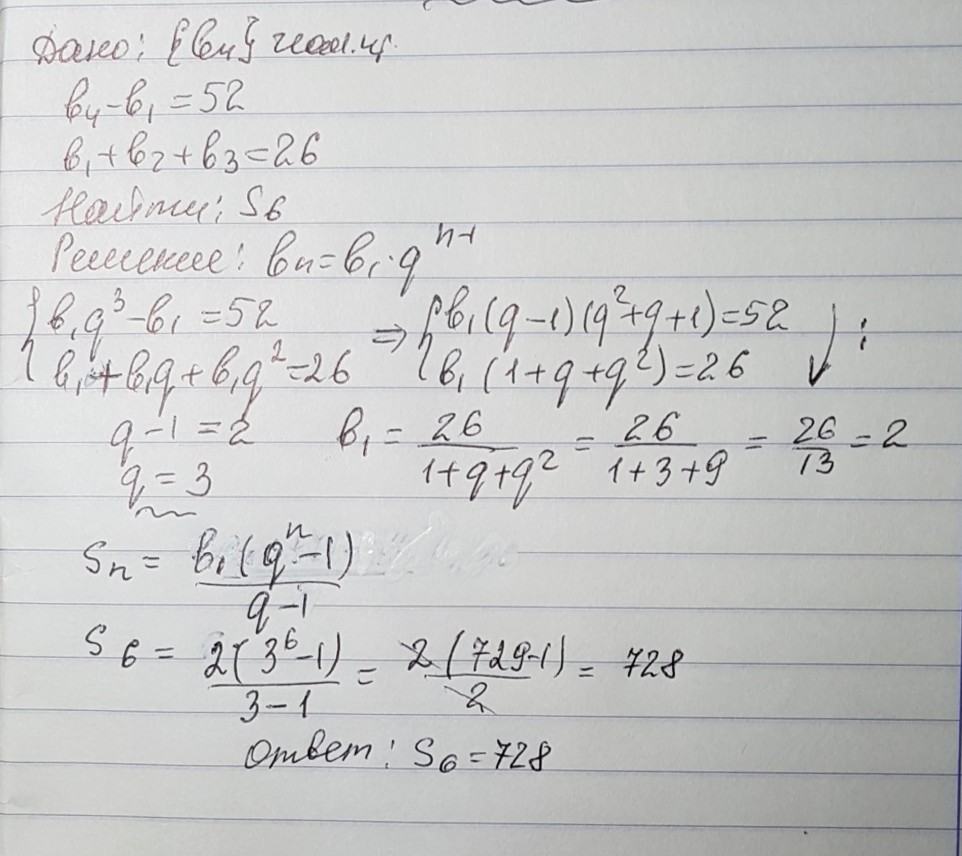 Дано: {bn} геом.пр.
b₄-b₁=52
b₁+b₂+b₃=26
Найти: S₆
Решение: bn=b₁·qⁿ⁻¹
{b₁q³-b₁=52 ⇒ {b₁(q-1)(q²+q+1)=52 ↓:
{b₁+b₁q+b₁q²=26 {b₁(1+q+q²)=26
q-1=2 b₁=26/(1+q+q²)=26/(1+3+9)=26/13=2
q=3
Sn=b₁(qⁿ-1)/(q-1)
S₆=2(3⁶-1)/(3-1)=2(729-1)/2=728
Ответ: S₆=728